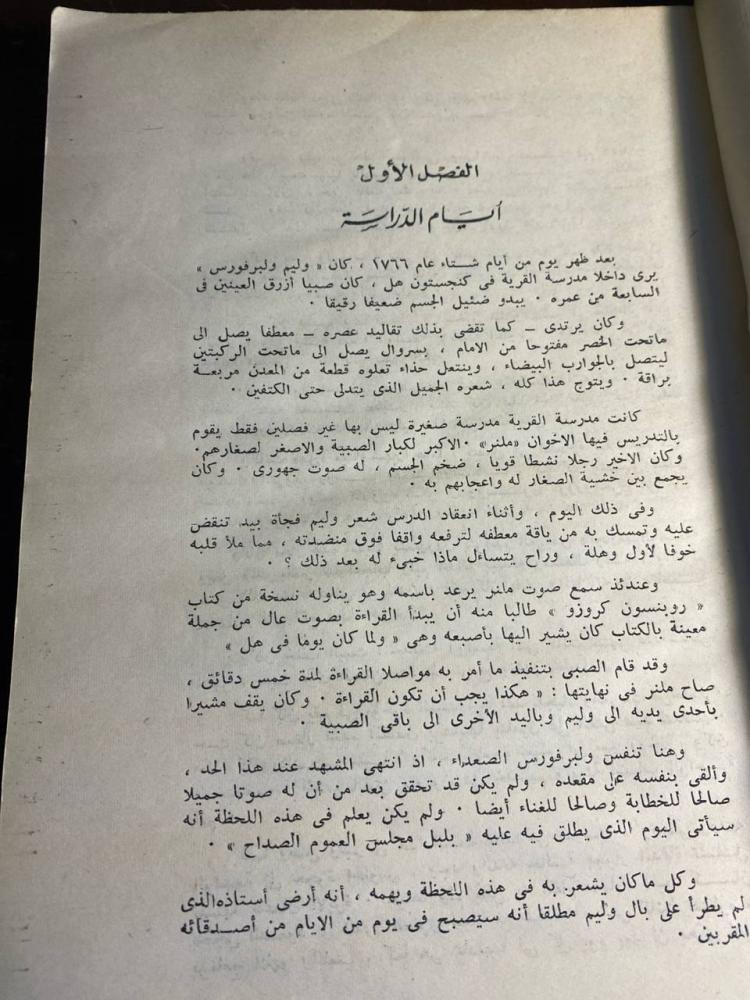 الفصل الأول
أيام الدراسة
بعد ظهر يوم من أيام شتاء عام ١٧٦٦ ، كان « وليم ولبرفورس »
يرى داخلا مدرسة القرية فى كنجستون هل ، كان صبيا أزرق العينين فى
السابعة من عمره ٠ يبدو ضئيل الجسم ضعيفا رقيقا ٠
وكان يرتدى – كما تقضى بذلك تقاليد عصره – معطفا يصل الى
ماتحت الخصر مفتوحا من الامام ، بسروال يصل الى ماتحت الركبتين
ليتصل بالجوارب البيضاء ، وينتعل حذاء تعلوه قطعة من المعدن مربعة
براقة ٠ ويتوج هذا كله ، شعره الجميل الذى يتدلى حتى الكتفين ٠
كانت مدرسة القرية مدرسة صغيرة ليس بها غير فصلين فقط يقوم
بالتدريس فيها الاخوان «ملنر» ٠الاكبر لكبار الصبية والاصغر لصغارهم٠
وكان الاخير رجلا نشطا قويا ، ضخم الجسم ، له صوت جهورى ٠ وكان
يجمع بين خشية الصغار له واعجابهم به ٠
وفى ذلك اليوم ، وأثناء انعقاد الدرس شعر وليم فجأة بيد تنقض
عليه وتمسك به من ياقة معطفه لترفعه واقفا فوق منضدته ، مما ملأ قلبه
خوفا لأول وهلة ، وراح يتساءل ماذا خبىء له بعد ذلك ؟ ٠
وعندئذ سمع صوت ملنر يرعد باسمه وهو يناوله نسخة من كتاب
« روبنسون كروزو » طالبا منه أن يبدأ القراءة بصوت عال من جملة
معينة بالكتاب كان يشير اليها بأصبعه وهى « ولما كان يوما فى هل »
وقد قام الصبى بتنفيذ ما أمر به مواصلا القراءة لمدة خمس دقائق ،
صاح ملنر فى نهايتها : « هكذا يجب أن تكون القراءة ٠ وكان يقف مشيرا
بأحدى يديه الى وليم وباليد الأخرى الى باقى الصبية ٠
وهنا تنفس ولبرفورس الصعداء ، اذ انتهى المشهد عند هذا الحد ،
وألقى بنفسه على مقعده ، ولم يكن قد تحقق بعد من أن له صوتا جميلا
صالحا للخطابة وصالحا للغناء أيضا ٠ ولم يكن يعلم فى هذه اللحظة أنه
سيأتى اليوم الذى يطلق فيه عليه « بلبل مجلس العموم الصداح » ٠
وكل ماكان يشعر به فى هذه اللحظة ويهمه ، أنه أرضى أستاذه الذى
لم يطرأ على بال وليم مطلقا أنه سيصبح فى يوم من الايام من أصدقائه
المقربين ٠